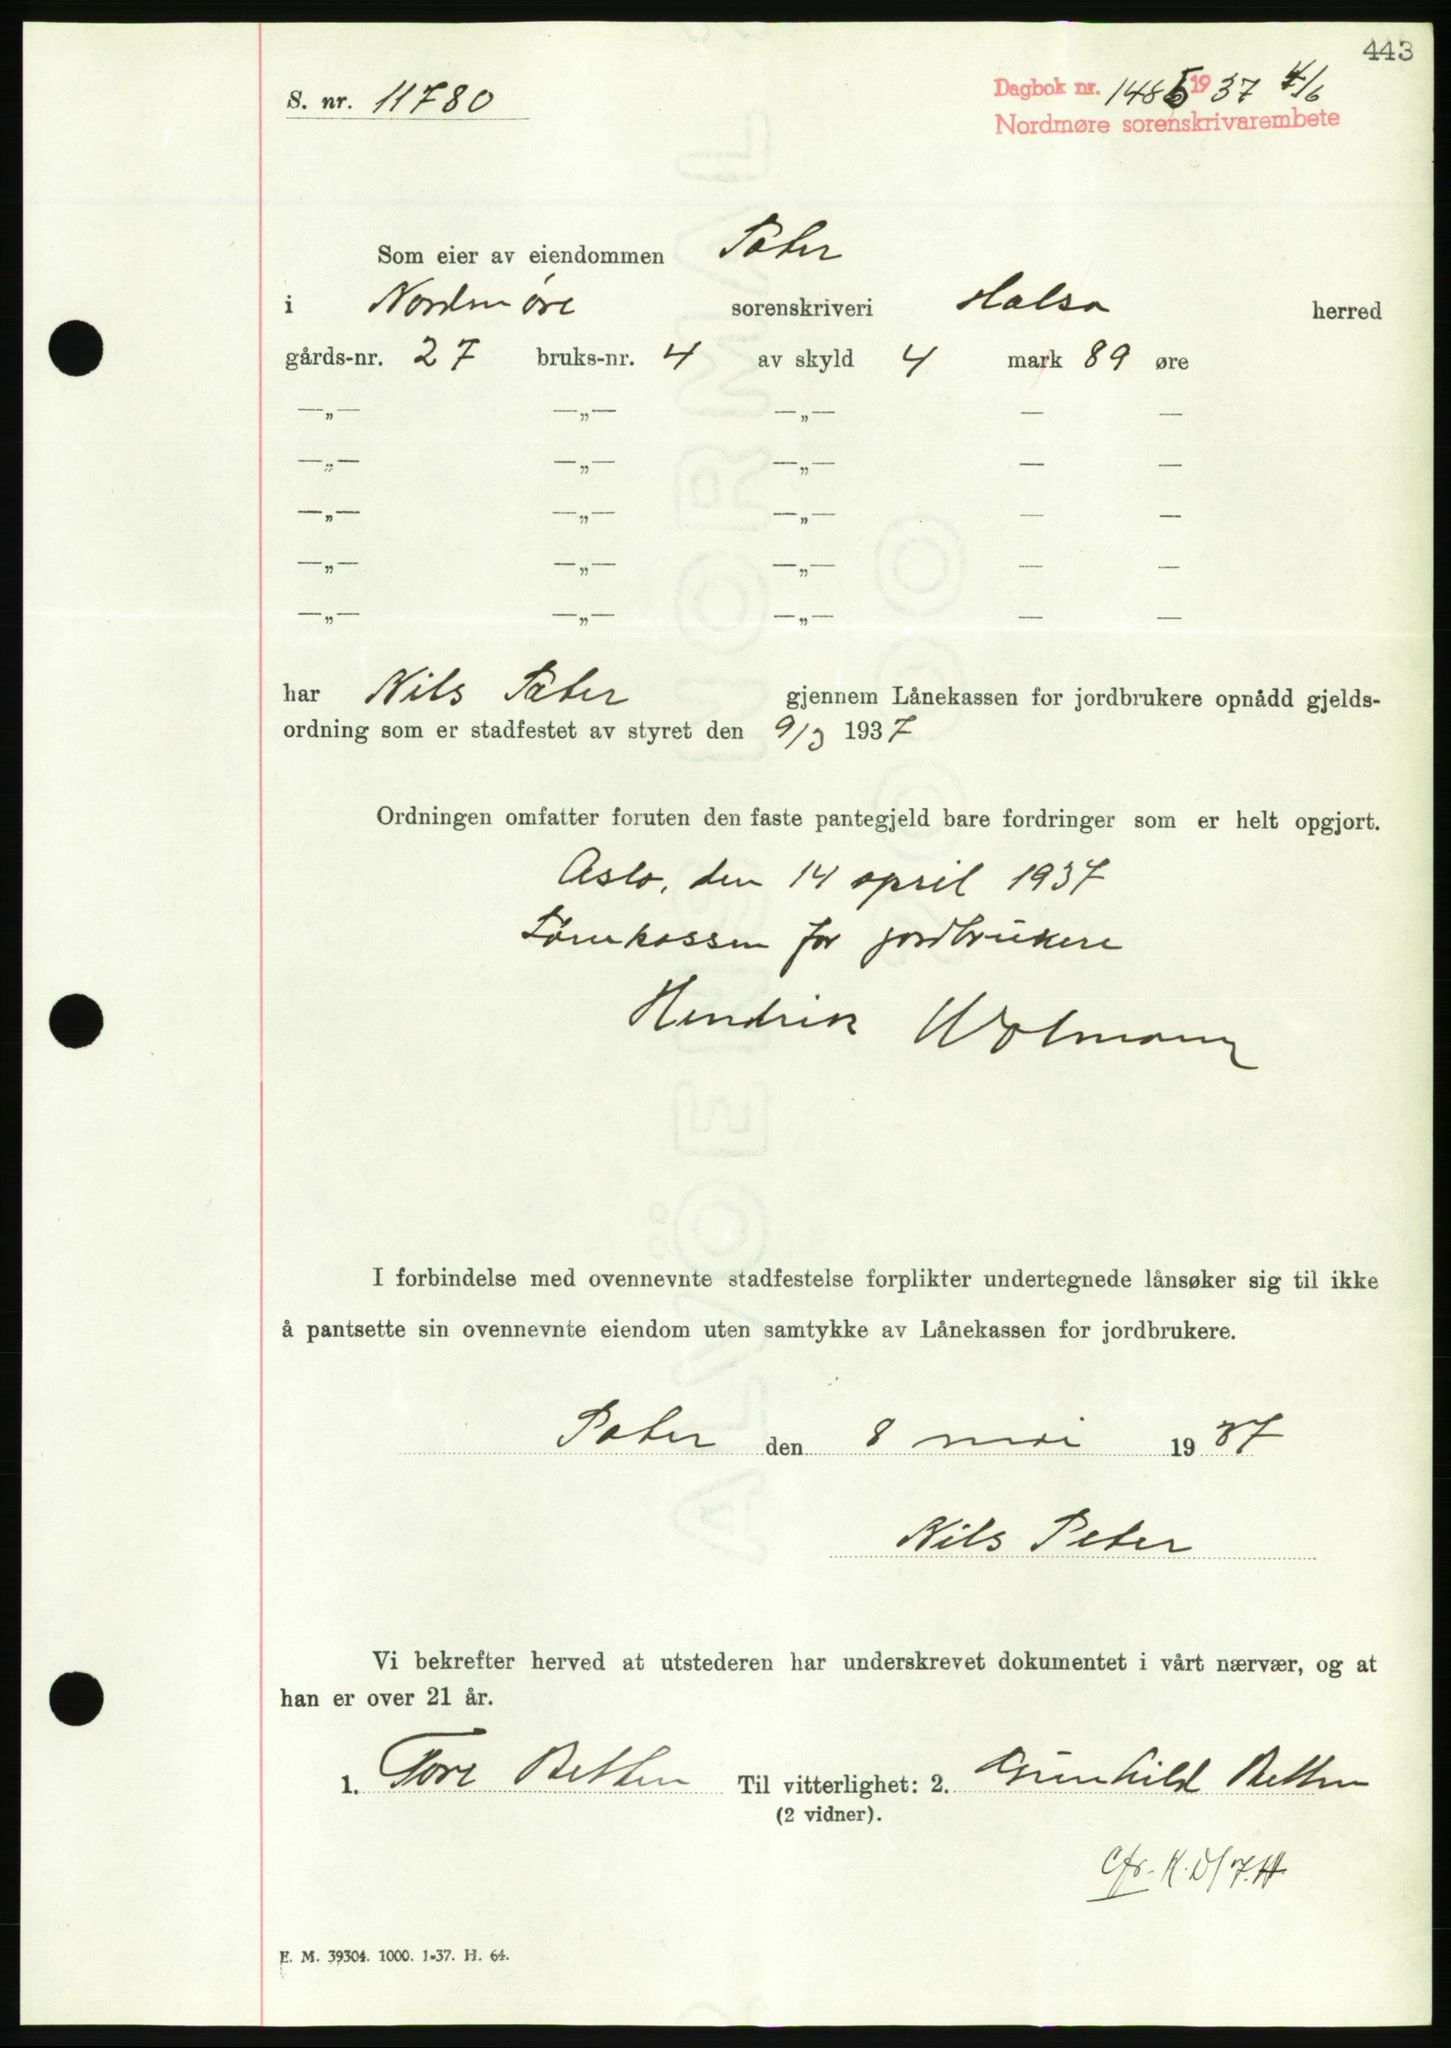 443
S. nr. 11780
Dagbok nr. 1485 1937 4/6
Nordmøre sorenskrivarembete
Som eier av eiendommen Sæter
i Nordmøre sorenskriveri Halsa herred
gårds-nr. 27 bruks-nr. 4 av skyld 4 mark 89 øre
—„— —„— —„— — —
—„— —„— —„— — —
—„— —„— —„— — —
—„— —„— —„— — —
—„— —„— —„— — —
har Nils Sæter gjennem Lånekassen for jordbrukere opnådd gjelds-
ordning som er stadfestet av styret den 9/3 1937
Ordningen omfatter foruten den faste pantegjeld bare fordringer som er helt opgjort.
Oslo, den 14 april 1937
Lånekassen for jordbrukere
Hendrik
I forbindelse med ovennevnte stadfestelse forplikter undertegnede lånsøker sig til ikke
å pantsette sin ovennevnte eiendom uten samtykke av Lånekassen for jordbrukere.
Sæter den 8 mai 1937
Nils Sæter
Vi bekrefter herved at utstederen har underskrevet dokumentet i vårt nærvær, og at
han er over 21 år.
1. Tore Betten Til vitterlighet: 2. Gunhild Betten
(2 vidner).
Cfr.
E. M. 39304. 1000. 1-37. H. 64.
ALVÖENS NORMAL